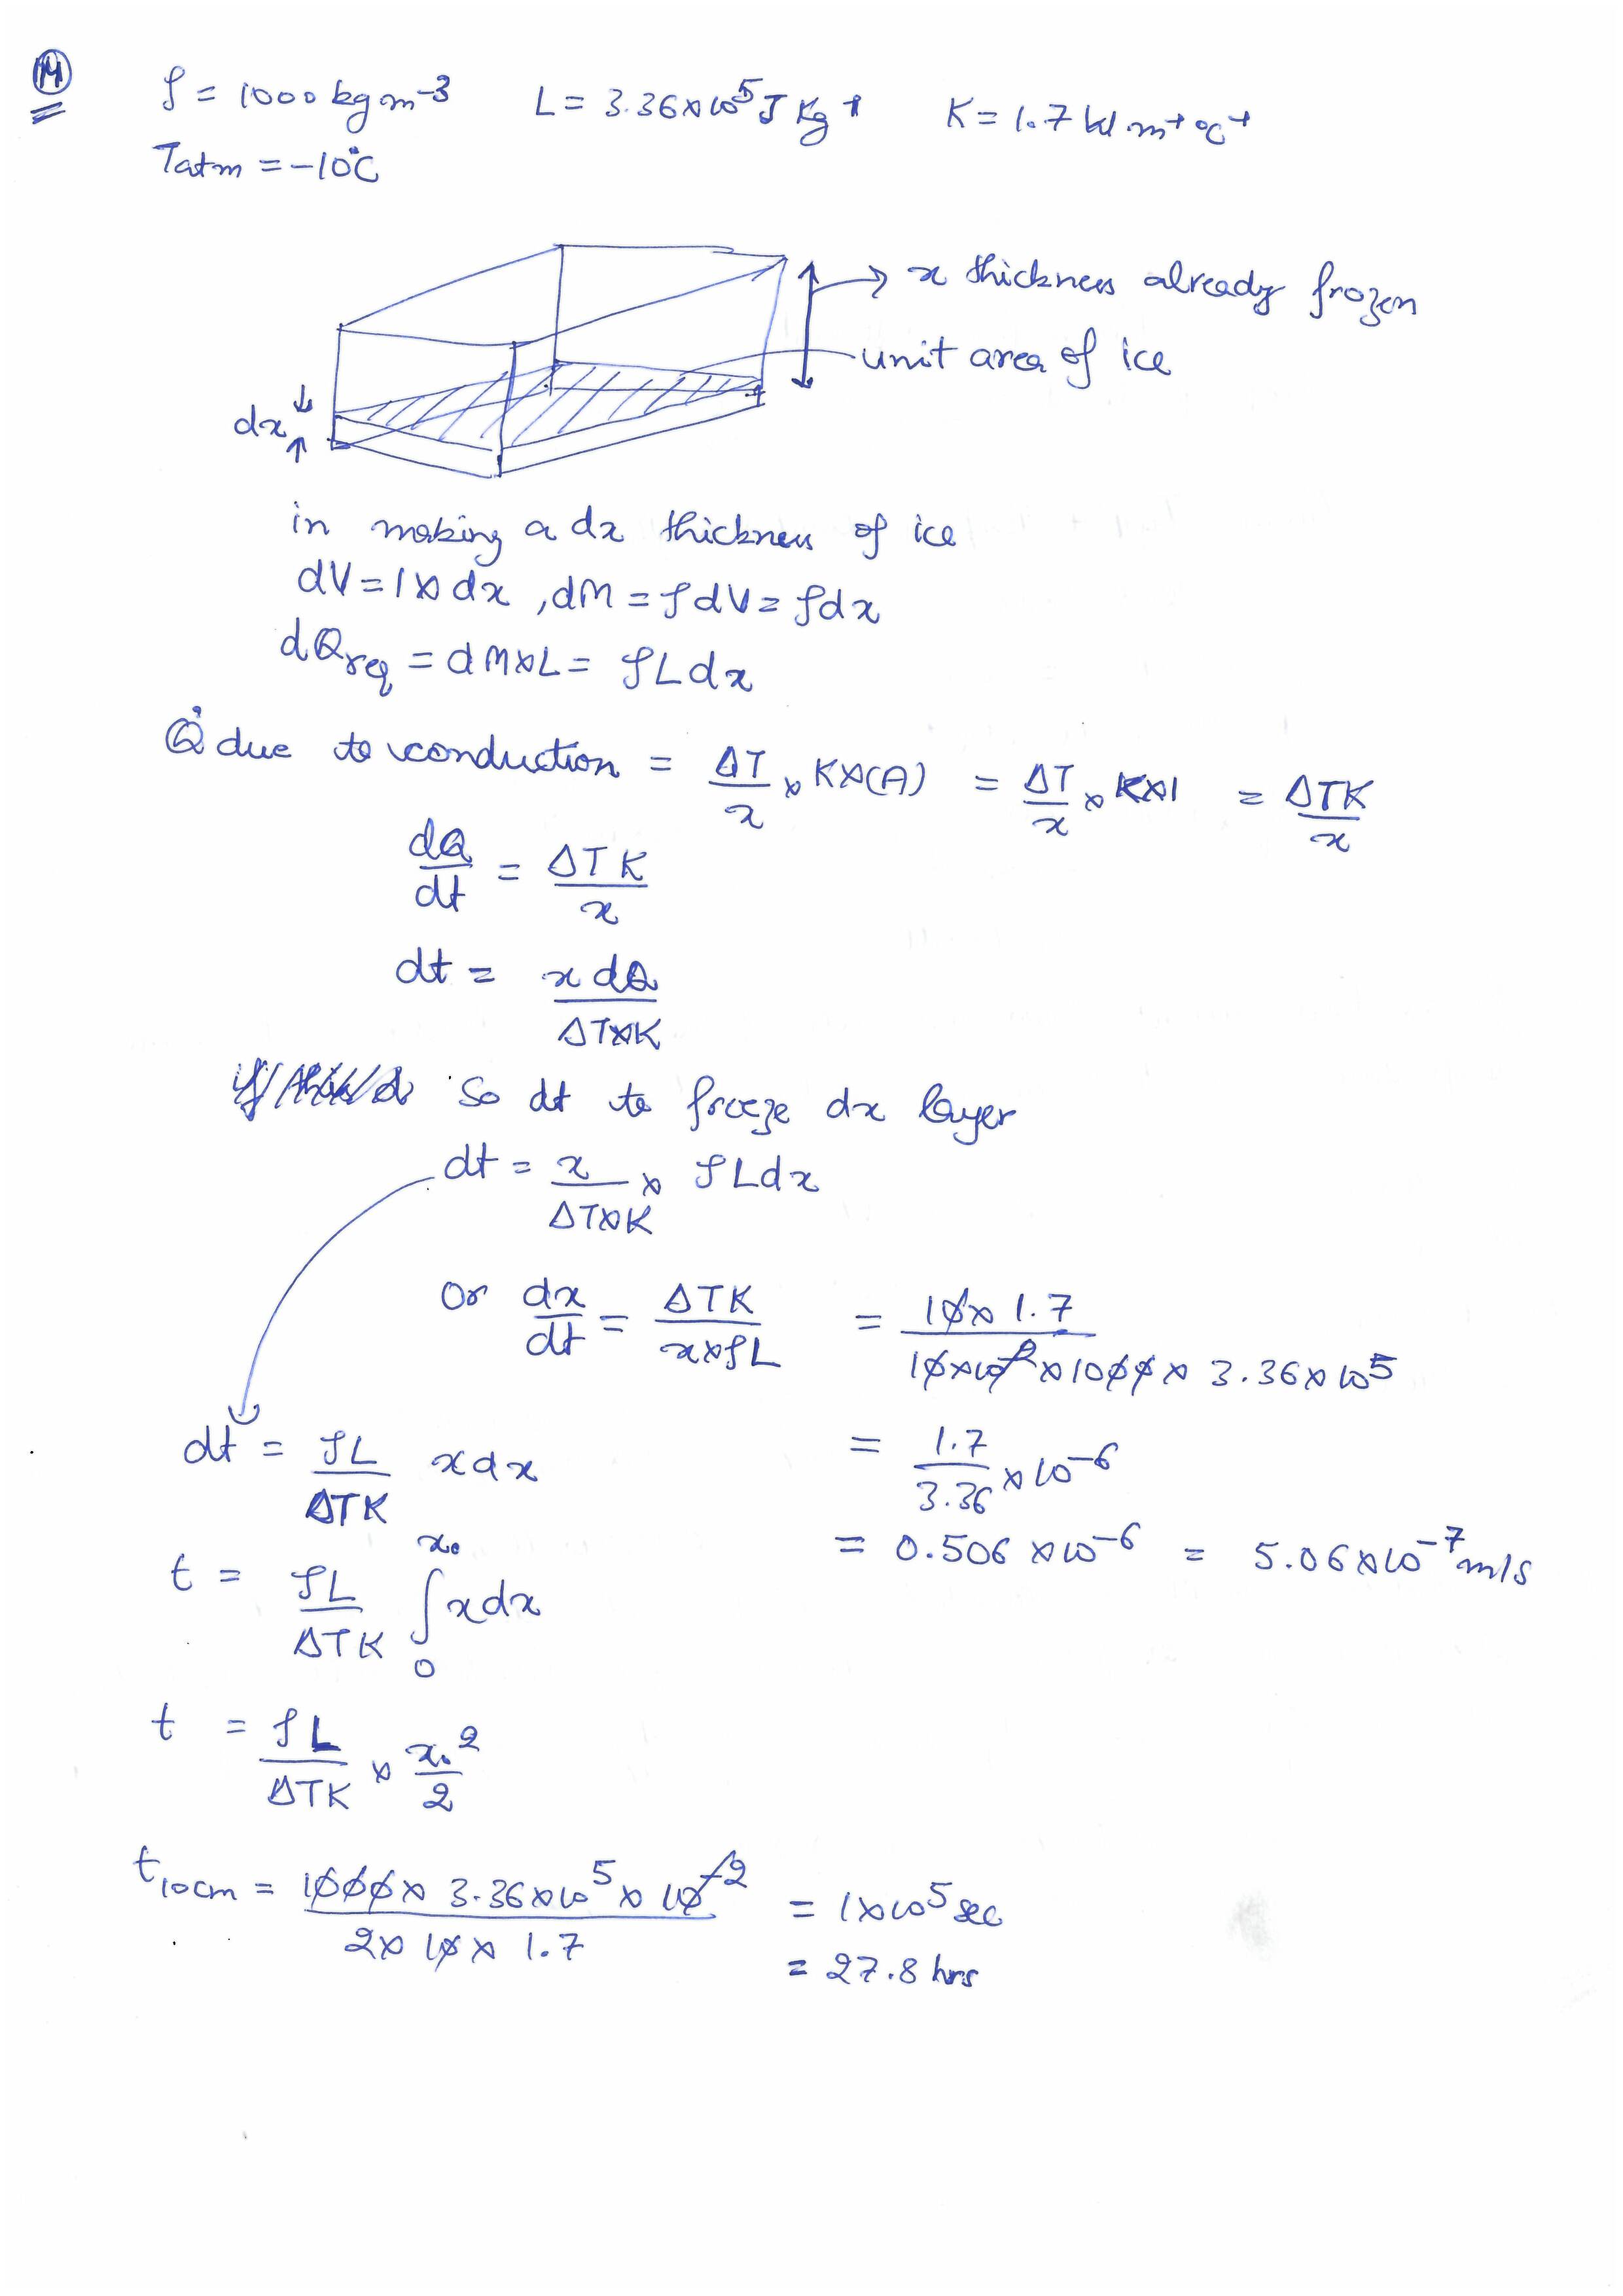 14
ρ = 1000 kg m⁻³ L = 3.36×10⁵ J Kg⁻¹ K = 1.7 W m⁻¹ °C⁻¹
Tatm = -10°C
x thickness already frozen
unit area of ice
dx
in making a dx thickness of ice
dV = 1 × dx , dM = ρdV = ρdx
dQreq = dM×L = ρLdx
Q̇ due to conduction = ΔT/x × K×(A) = ΔT/x × K×1 = ΔTK/x
dQ/dt = ΔTK/x
dt = x dQ/ΔT×K
So dt to freeze dx layer
dt = x/ΔT×K × ρLdx
Or dx/dt = ΔTK/x×ρL = 10×1.7/10×10⁻²×1000×3.36×10⁵
dt = ρL/ΔTK xdx
= 1.7/3.36 ×10⁻⁶
= 0.506×10⁻⁶ = 5.06×10⁻⁷ m/s
t = ρL/ΔTK ∫₀^x₀ xdx
t = ρL/ΔTK × x₀²/2
t10cm = 1000×3.36×10⁵×10⁻²/2×10×1.7 = 1×10⁵ sec
= 27.8 hrs